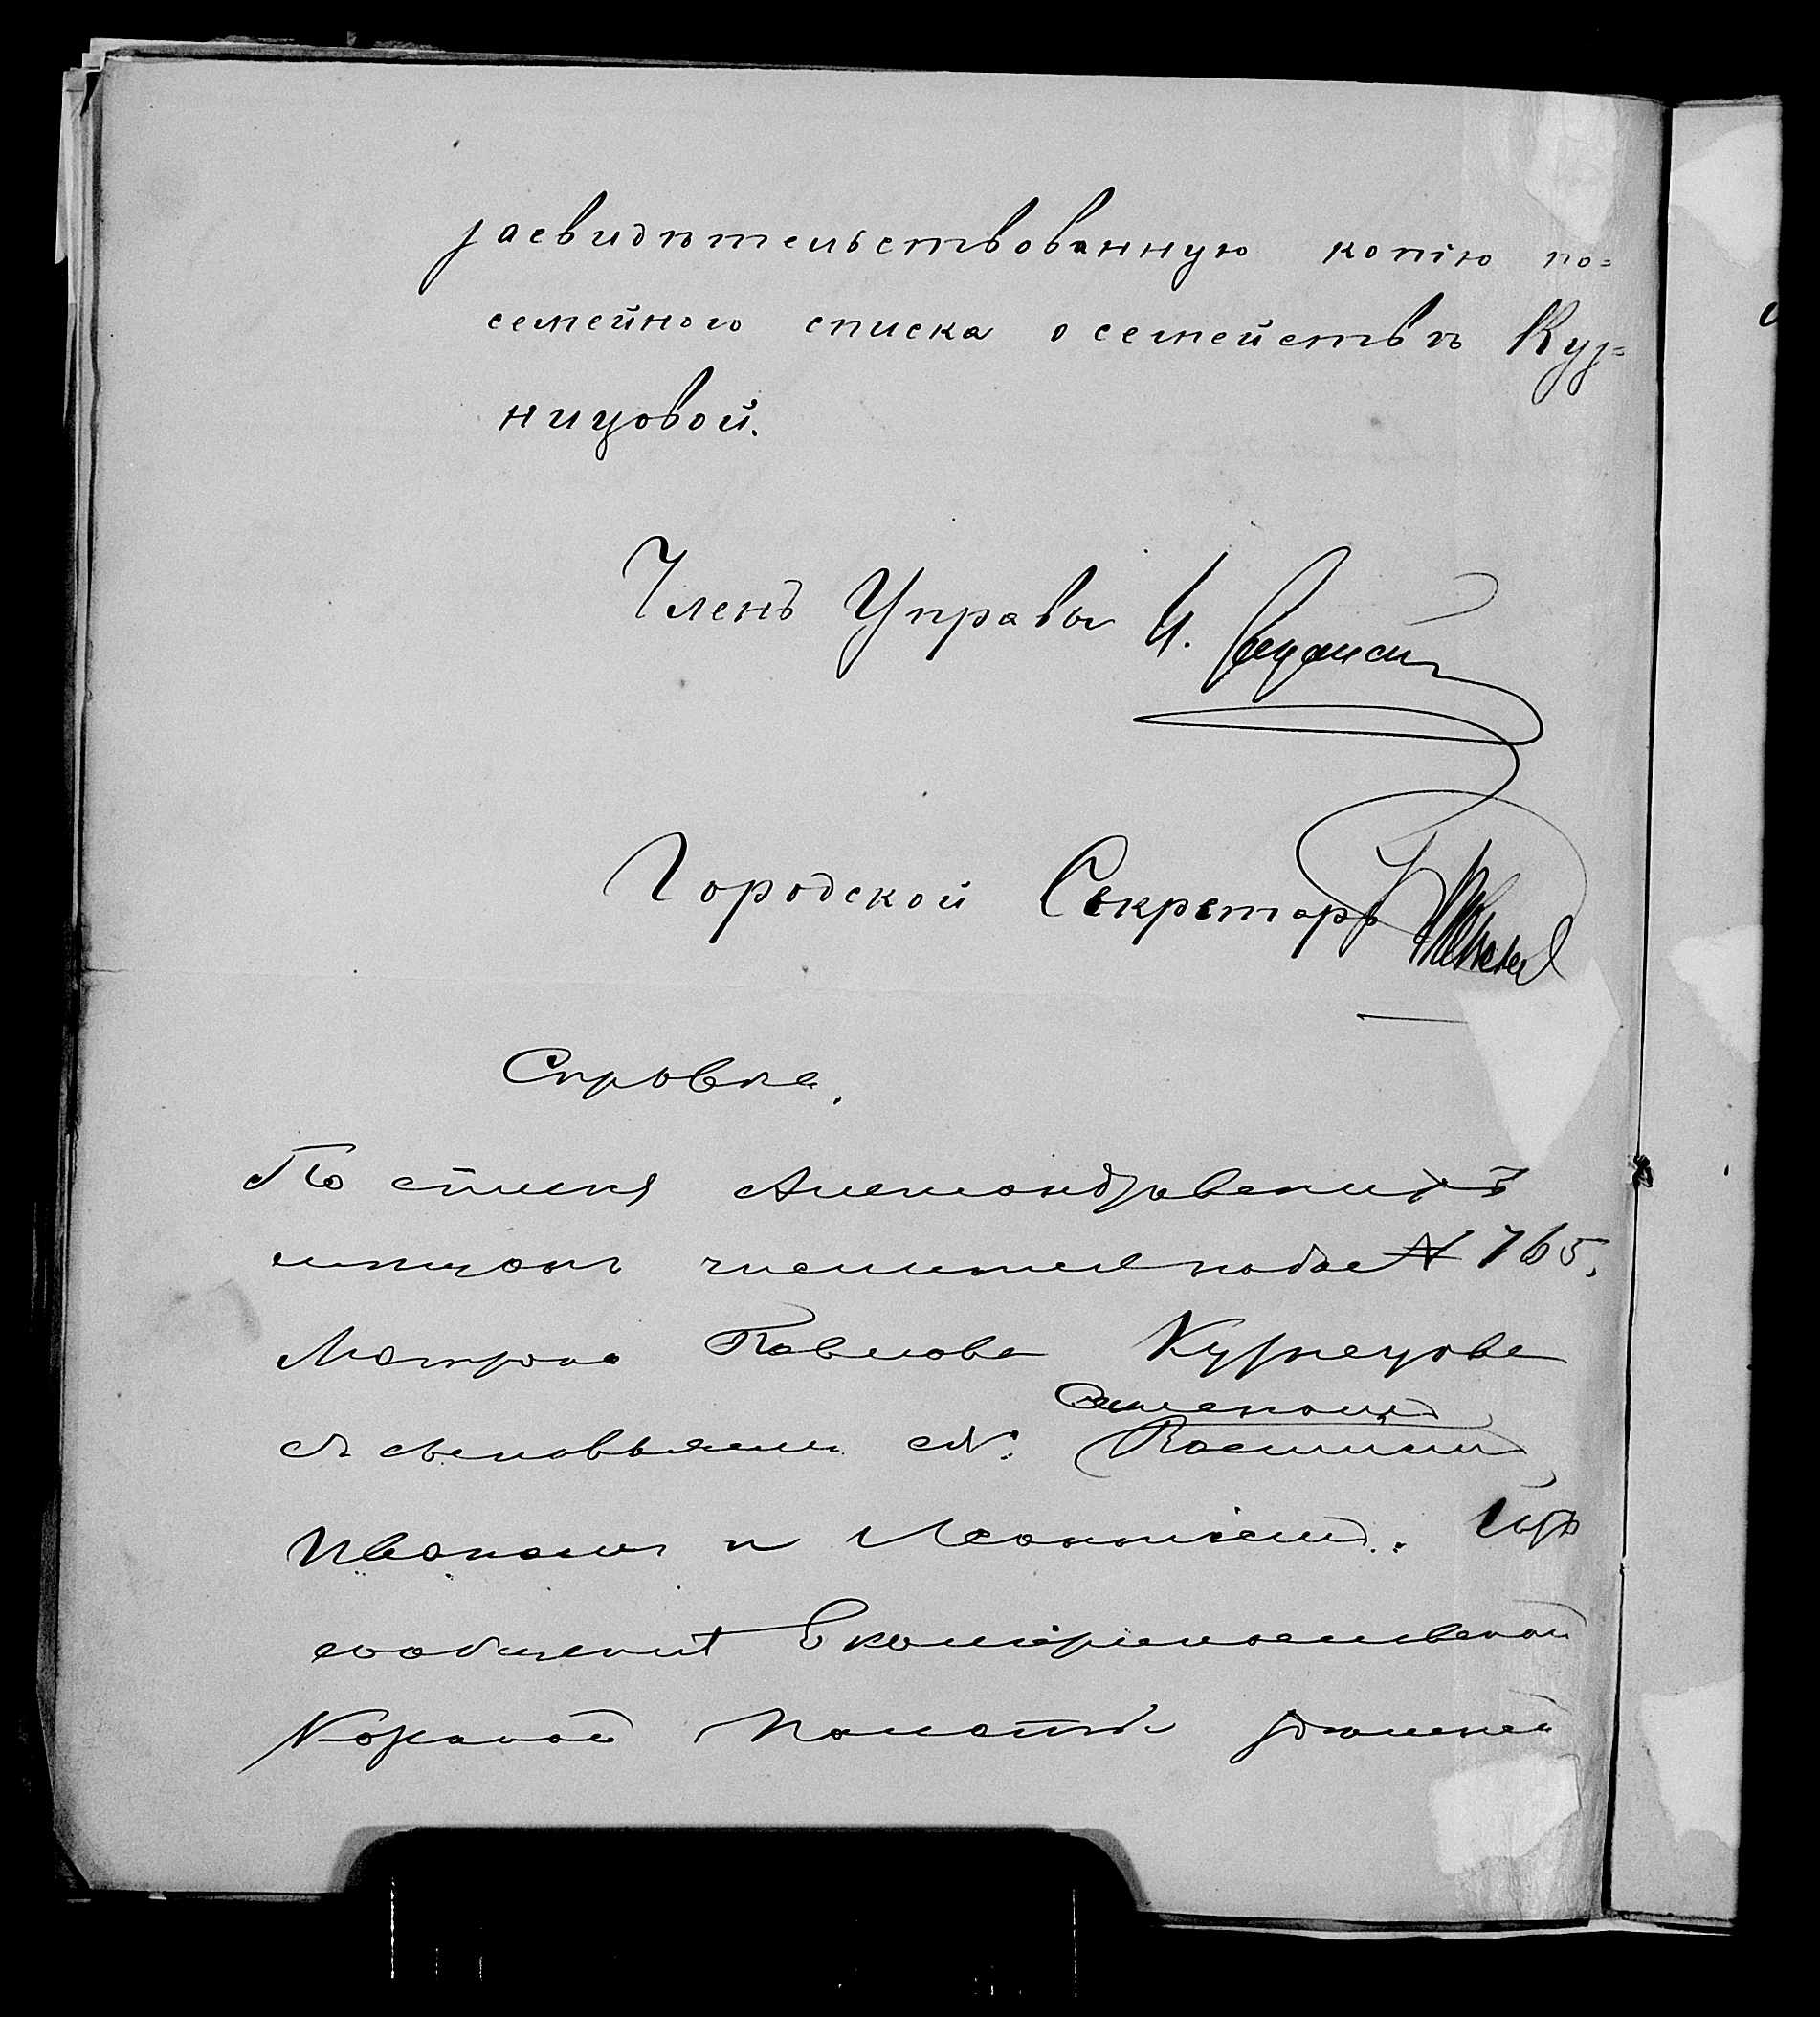 засвидѣтельствованную копію по=
семейного списка о семействѣ Куз=
ницовой.
Членъ Управы И.
Городской Секретарь
Справка.
По списку Александровскихъ
мѣщанъ числится подъ № 765.
Матрона Павлова Кузнецова
Семеномъ
съ сыновьями Василіемъ,
Иваномъ и Леонтіемъ. Изъ
сообщенія Екатеринославской
Казенной Палаты